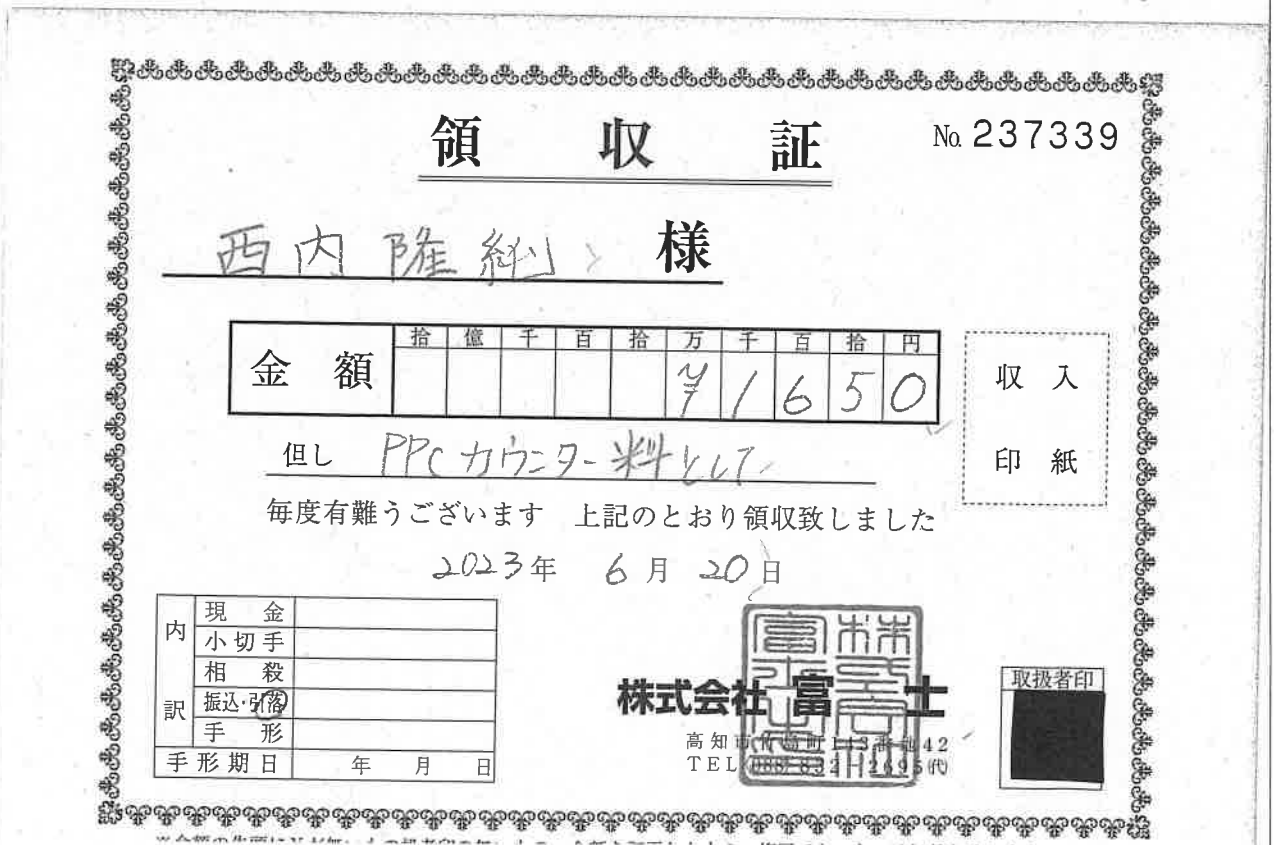 領収証
No. 237339
西内隆 様
金額
拾 億 千 百 拾 万 千 百 拾 円
¥1650
収入
印紙
但し PPCカウンター料として
毎度有難うございます 上記のとおり領収致しました
2023年 6月 20日
内訳
現金
小切手
相殺
振込・引落
手形
手形期日 年 月 日
株式会社 富士
高知市 町113番地42
TEL(088)832-2695(代)
取扱者印